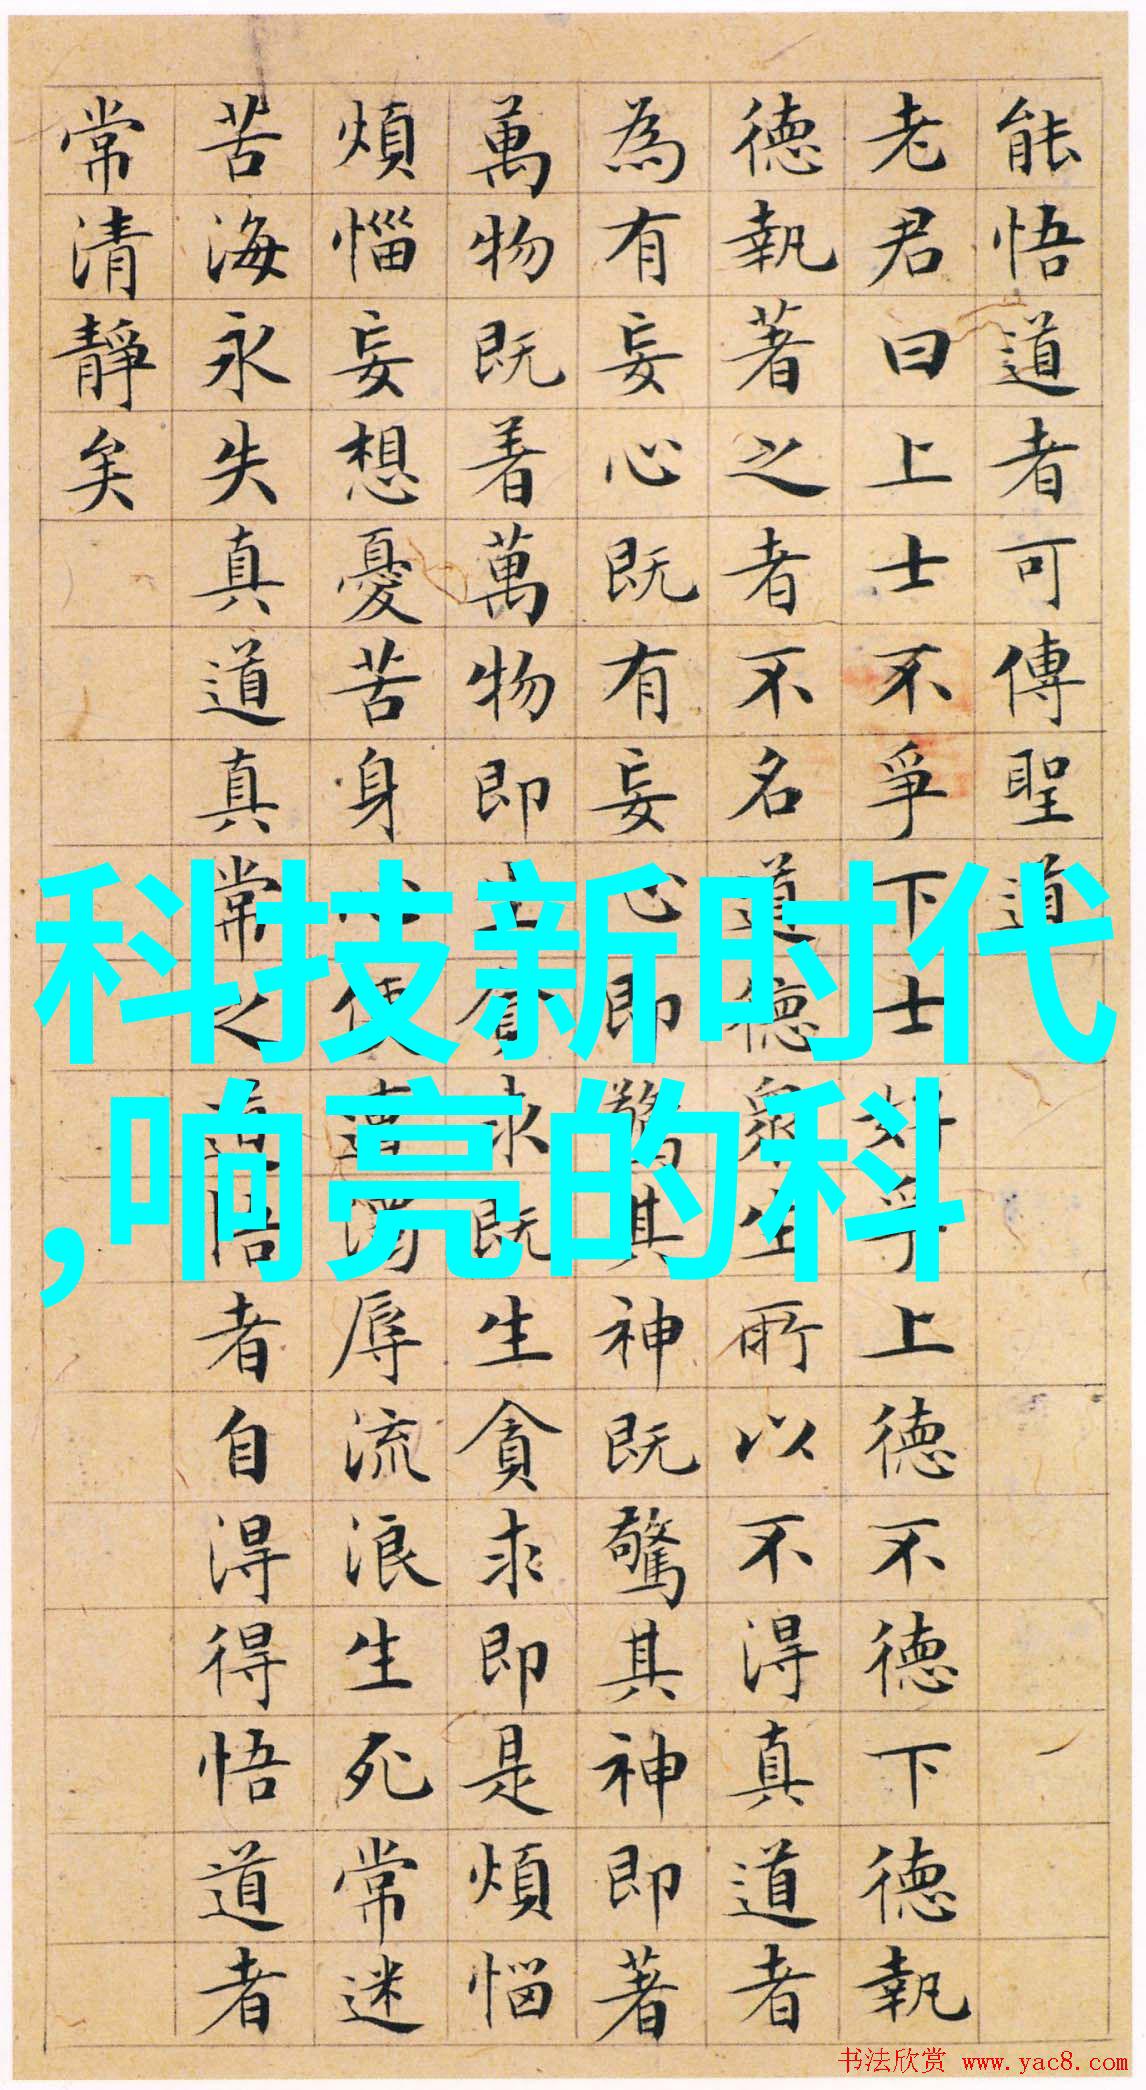 能悟道者可傳聖道
老君曰上士不爭下士好爭上德不德下德執
德執著之者不名道德衆生所以不得真道者
為有妄心既有妄心即驚其神既驚其神即著
萬物既着萬物即生貪求既生貪求即是煩惱
煩惱妄想憂苦身心便遭濁辱流浪生死常迷
苦海永失真道真常之道悟者自得得悟道者
常清靜矣
科技新时代
,响亮的科
书法欣赏 www.yac8.com